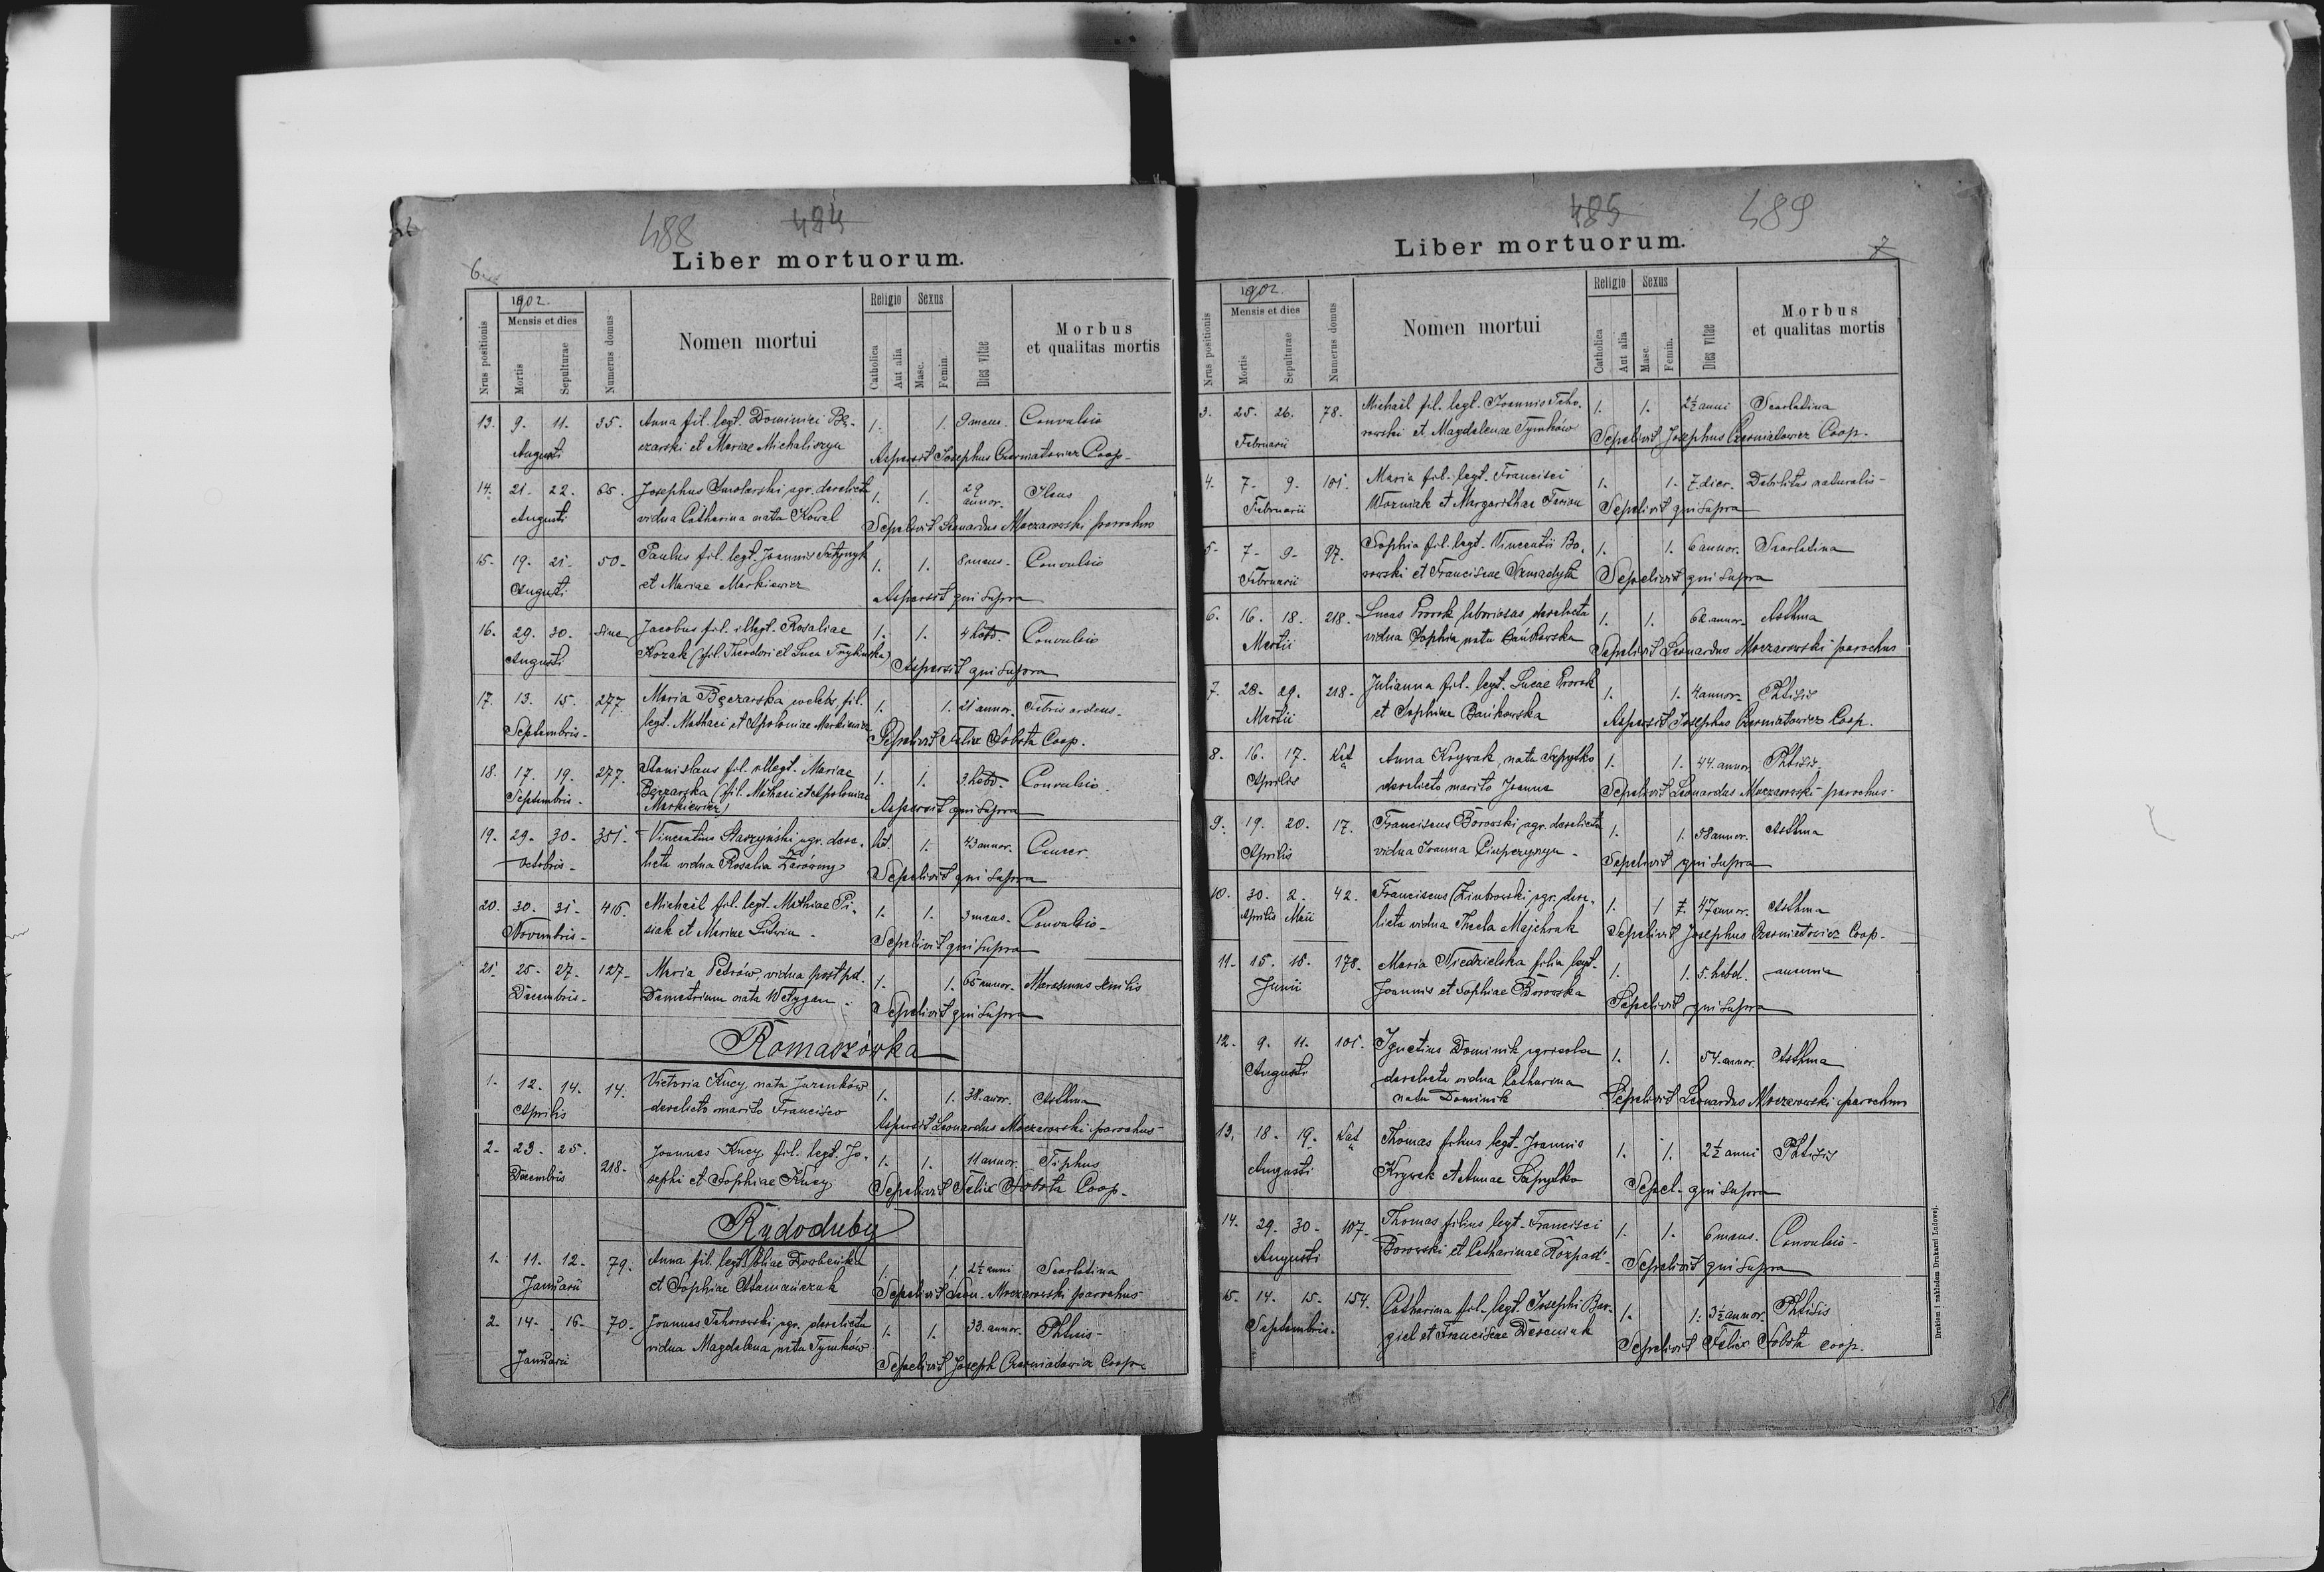 488 484
Liber mortuorum.
6
Nrus positionis
1902.
Mensis et dies
Mortis
Sepulturae
Numerus domus
Nomen mortui
Religio
Catholica
Aut alia
Sexus
Masc.
Femin.
Dies vitae
Morbus
et qualitas mortis
13. 9. 11. 35. Anna fil. legt. Dominici Bę- 1. 1. 9 mens. Convulsio
Augusti czarski et Mariae Michaliszyn Aspersit Josephus Czerniatowicz Coop.
14. 21. 22. 65. Josephus Smolarski agr. derelicta 1. 1. 29 annor. Ileus
Augusti vidua Catharina nata Kowal Sepelivit Leonardus Moczarowski parochus
15. 19. 21. 50. Paulus fil. legt. Joannis 1. 1. 8 mens. Convulsio
Augusti et Mariae Markiewicz Aspersit qui supra
16. 29. 30. sine Jacobus fil. illegt. Rosaliae 1. 1. 4 hebd. Convulsio
Augusti Kozak (fil. Theodori et Luca Aspersit qui supra
17. 13. 15. 277. Maria Bęczarska coelebs, fil. 1. 1. 21 annor. Febris ardens.
Septembris. legt. Mathaei et Apoloniae Markiewicz Sepelivit Felix Sobota Coop.
18. 17. 19. 277. Stanislaus fil. illegt. Mariae 1. 1. 3 hebd. Convulsio.
Septembris. Bęczarska (fil. Mathaei et Apoloniae
Markiewicz) Aspersit qui supra
19. 29. 30. 351. Vincentius Starzyński agr. dere- 1. 43 annor. Cancer.
Octobris. licta vidua Rosalia Zarówny Sepelivit qui supra
20. 30. 31. 416. Michaël fil. legt. Mathiae Pi- 1. 1. 3 mens. Convulsio.
Novembris. siak et Mariae Litwin. Sepelivit qui supra
21. 25. 27. 127. Maria Petrów, vidua post pd. 1. 1. 65 annor. Marasmus senilis
Decembris. Demetrium nata Wetygan. Sepelivit qui supra
Romaszówka
1. 12. 14. 14. Victoria Kucy, nata Jurenków 1. 1. 38. annor. Asthma
Aprilis derelicto marito Francisco Aspersit Leonardus Moczarowski parochus
2. 23. 25. 218. Joannes Kucy, fil. legt. Jo- 1. 1. 11 annor. Tiphus
Decembris sephi et Sophiae Kucy Sepelivit Felix Sobota Coop.
Rydoduby
1. 11. 12. 79. Anna fil. legt. Eliae 1. 1. 2½ anni Scarlatina
Januarii et Sophiae Atamańczuk Sepelivit Leon. Moczarowski parochus
2. 14. 16. 70. Joannes Tehorowski, agr. derelicta 1. 1. 33. annor. Phtisis.
Januarii vidua Magdalena nata Tymków Sepelivit Joseph Czerniatowicz Coop.
485 489
Liber mortuorum.
7
Nrus positionis
1902.
Mensis et dies
Mortis
Sepulturae
Numerus domus
Nomen mortui
Religio
Catholica
Aut alia
Sexus
Masc.
Femin.
Dies vitae
Morbus
et qualitas mortis
3. 25. 26. 78. Michaël fil. legt. Joannis Teho- 1. 1. 2½ anni Scarlatina
Februarii rowski et Magdalenae Tymków Sepelivit Josephus Czerniatowicz Coop.
4. 7. 9. 101. Maria fil. legt. Francisci 1. 1. 7 dier. Debilitas naturalis.
Februarii Wozniak et Margarithae Sepelivit qui supra
5. 7. 9. 97. Sophia fil. legt. Vincentii Bo- 1. 1. 6 annor. Scarlatina
Februarii rowski et Franciscae Sepelivit qui supra
6. 16. 18. 218. Lucas Prorok laboriosus derelicta 1. 1. 62 annor. Asthma
Martii vidua Sophia nata Bańkowska Sepelivit Leonardus Moczarowski parochus
7. 28. 29. 218. Julianna fil. legt. Lucae Prorok 1. 1. 4 annor. Phtisis
Martii et Sophiae Bańkowska Aspersit Josephus Czerniatowicz Coop.
8. 16. 17. Anna Krywak, nata Szpytko 1. 1. 44. annor Phtisis.
Aprilis derelicto marito Joanne Sepelivit Leonardus Moczarowski parochus.
9. 19. 20. 17. Franciscus Borowski agr. derelicta 1. 1. 58 annor. Asthma
Aprilis vidua Joanna Sepelivit qui supra
10. 30. 2. 42. Franciscus Ziubrowski agr. dere- 1. 1 47 annor. Asthma
Aprilis Maii licta vidua Thecla Majchrak Sepelivit Josephus Czerniatowicz Coop.
11. 15. 16. 178. Maria Niedzielska filia legt. 1. 1. 5. hebd. anemia
Junii Joannis et Sophiae Borowska Sepelivit qui supra
12. 9. 11. 101. Ignatius Dominik, agricola 1. 1. 54. annor. Asthma
Augusti derelicta vidua Catharina
nata Dominik Sepelivit Leonardus Moczarowski parochus
13. 18. 19. Thomas filius legt. Joannis 1. 1. 2½ anni Phtisis
Augusti Krywak et Annae Szpytko Sepel. qui supra
14. 29. 30. 107. Thomas filius legt. Francisci 1. 1. 6 mens. Convulsio.
Augusti Borowski et Catharinae Rozpad. Sepelivit qui supra
15. 14. 15. 154. Catharina fil. legt. Josephi Bar- 1. 1. 3½ annor. Phtisis
Septembris. giel et Franciscae Dereniuk Sepelivit Felix Sobota coop.
Drukiem i nakładem Drukarni Ludowej.